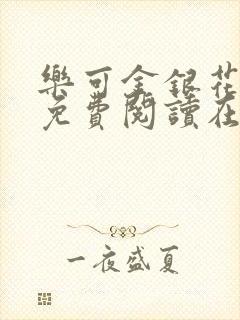 樂可金銀花
免費閱讀在
一夜盛夏